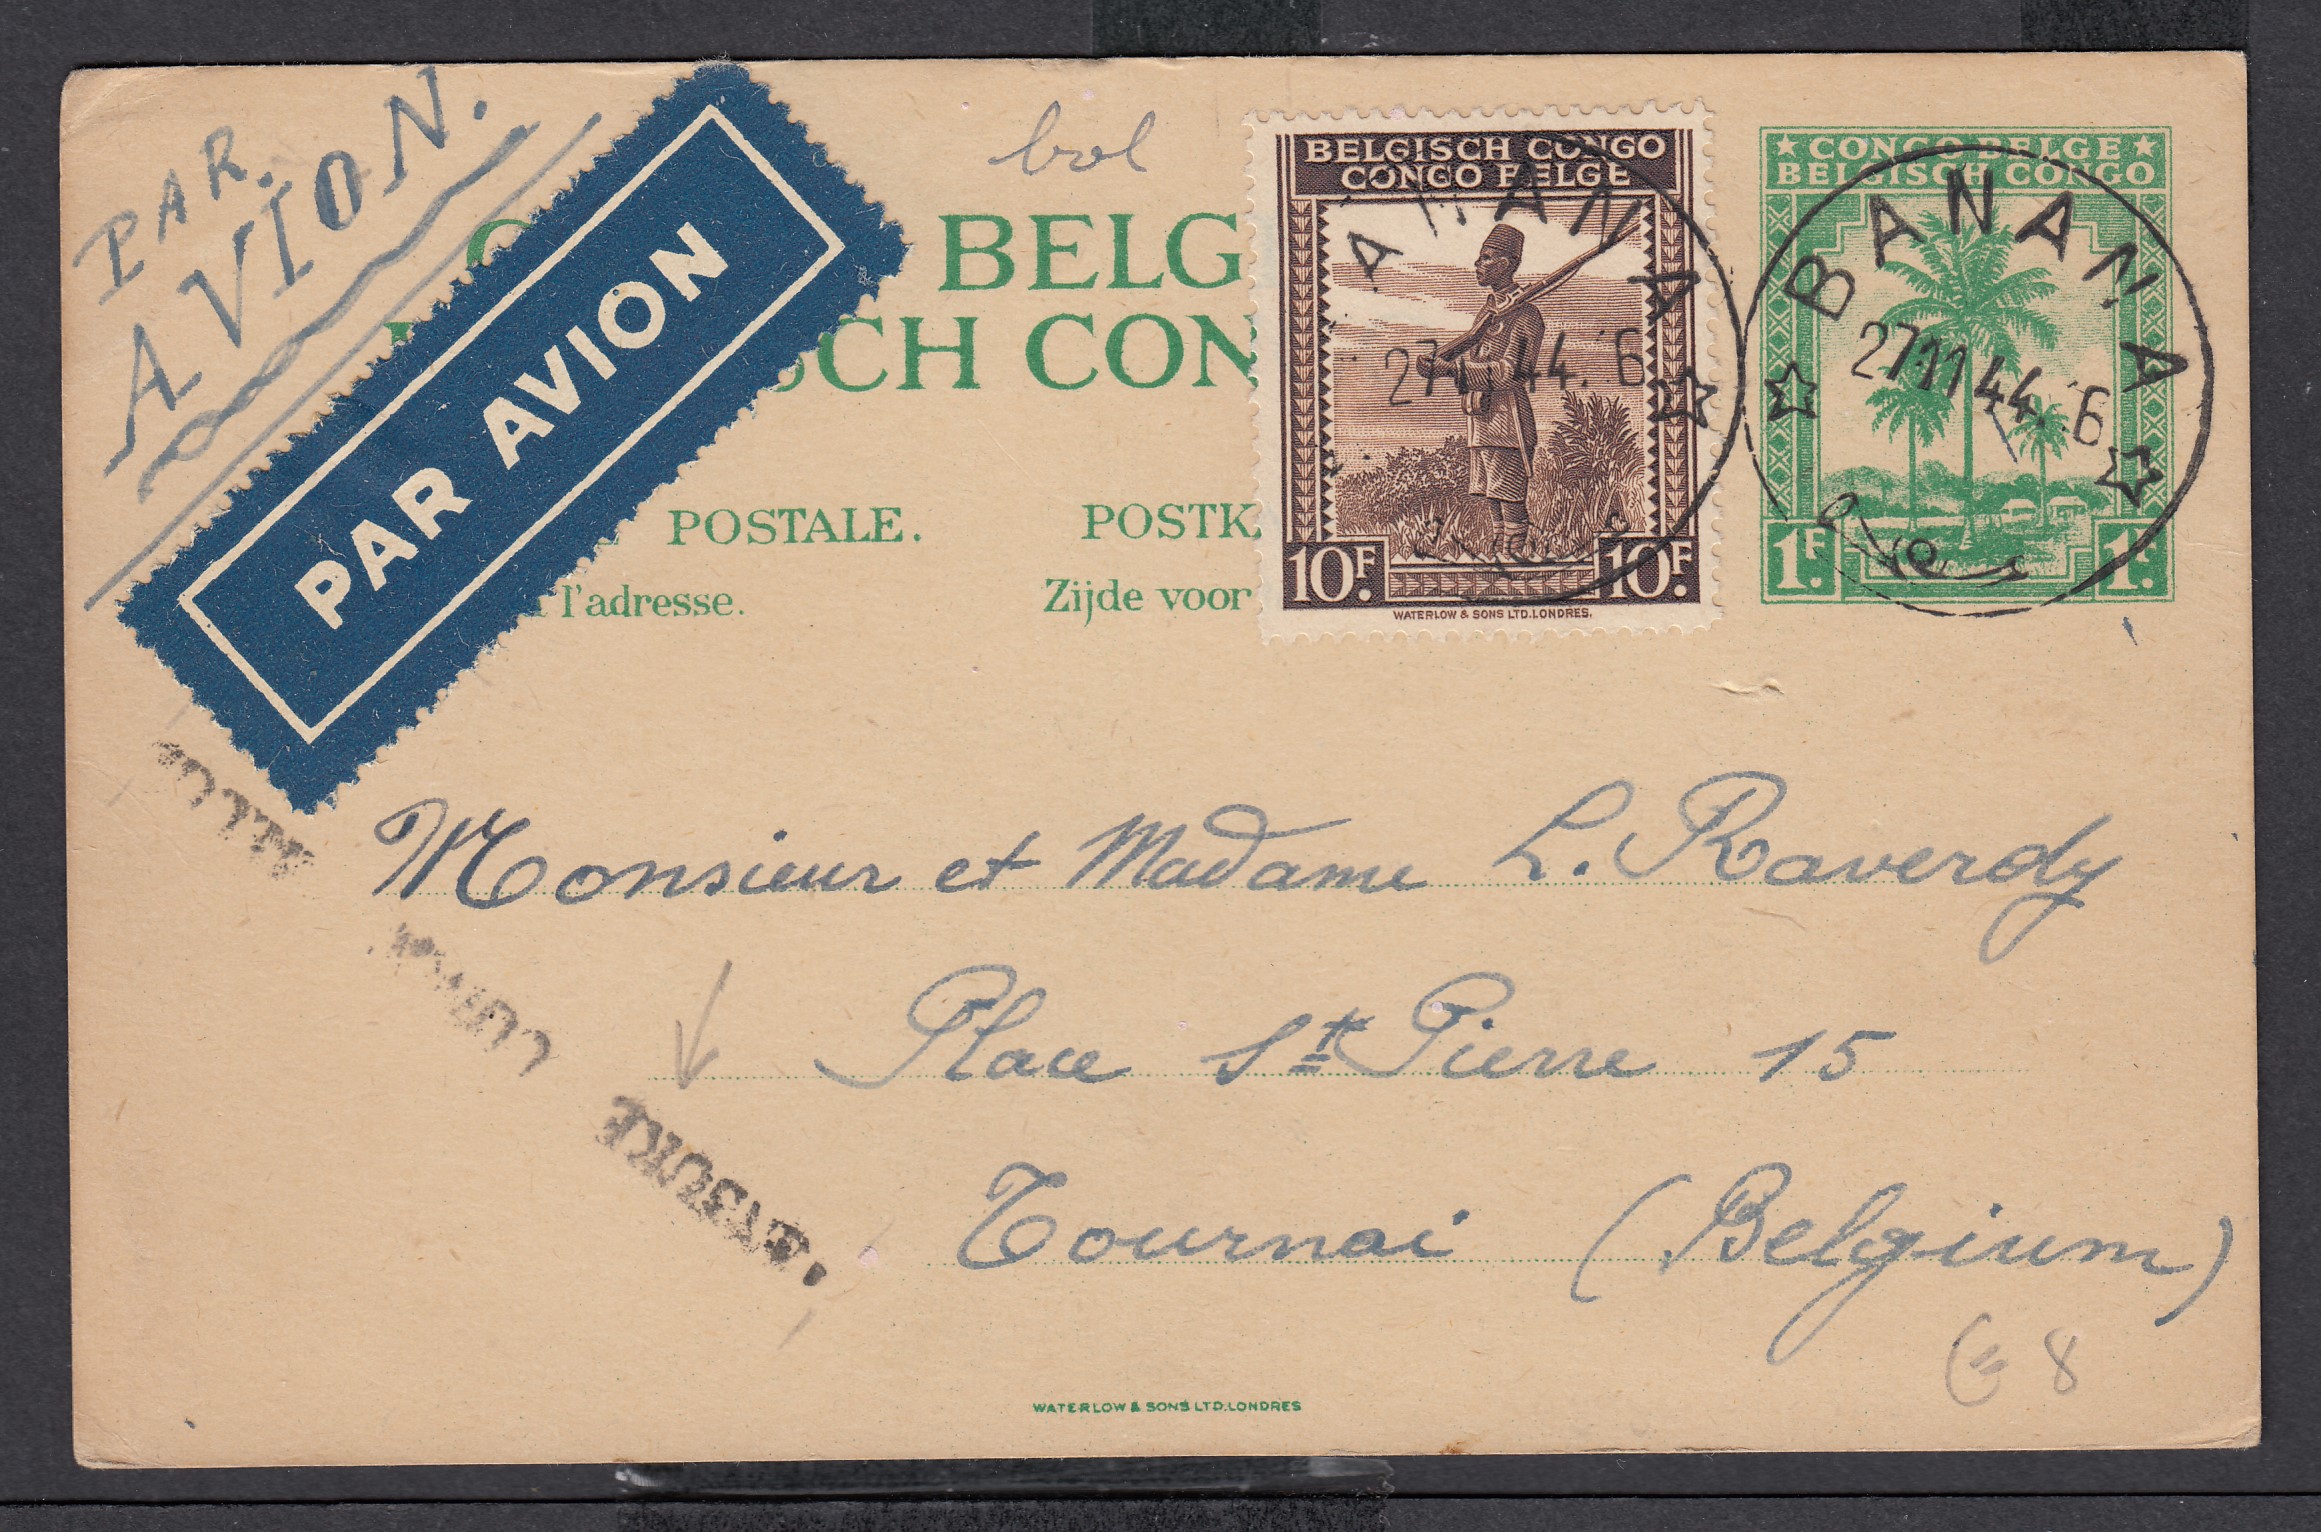 PAR.
AVION.
PAR AVION
bol
BELG
SCH CON
POSTALE. POSTK
l'adresse. Zijde voor
BELGISCH CONGO
CONGO BELGE
10F. 10F.
WATERLOW & SONS LTD. LONDRES.
★ CONGO BELGE ★
BELGISCH CONGO
1F. 1F.
BANANA
27.11.44. 6
BANANA
27.11.44. 6
Monsieur et Madame L. Raverdy
Place St Pierre 15
Tournai (Belgium)
8
WATERLOW & SONS LTD. LONDRES